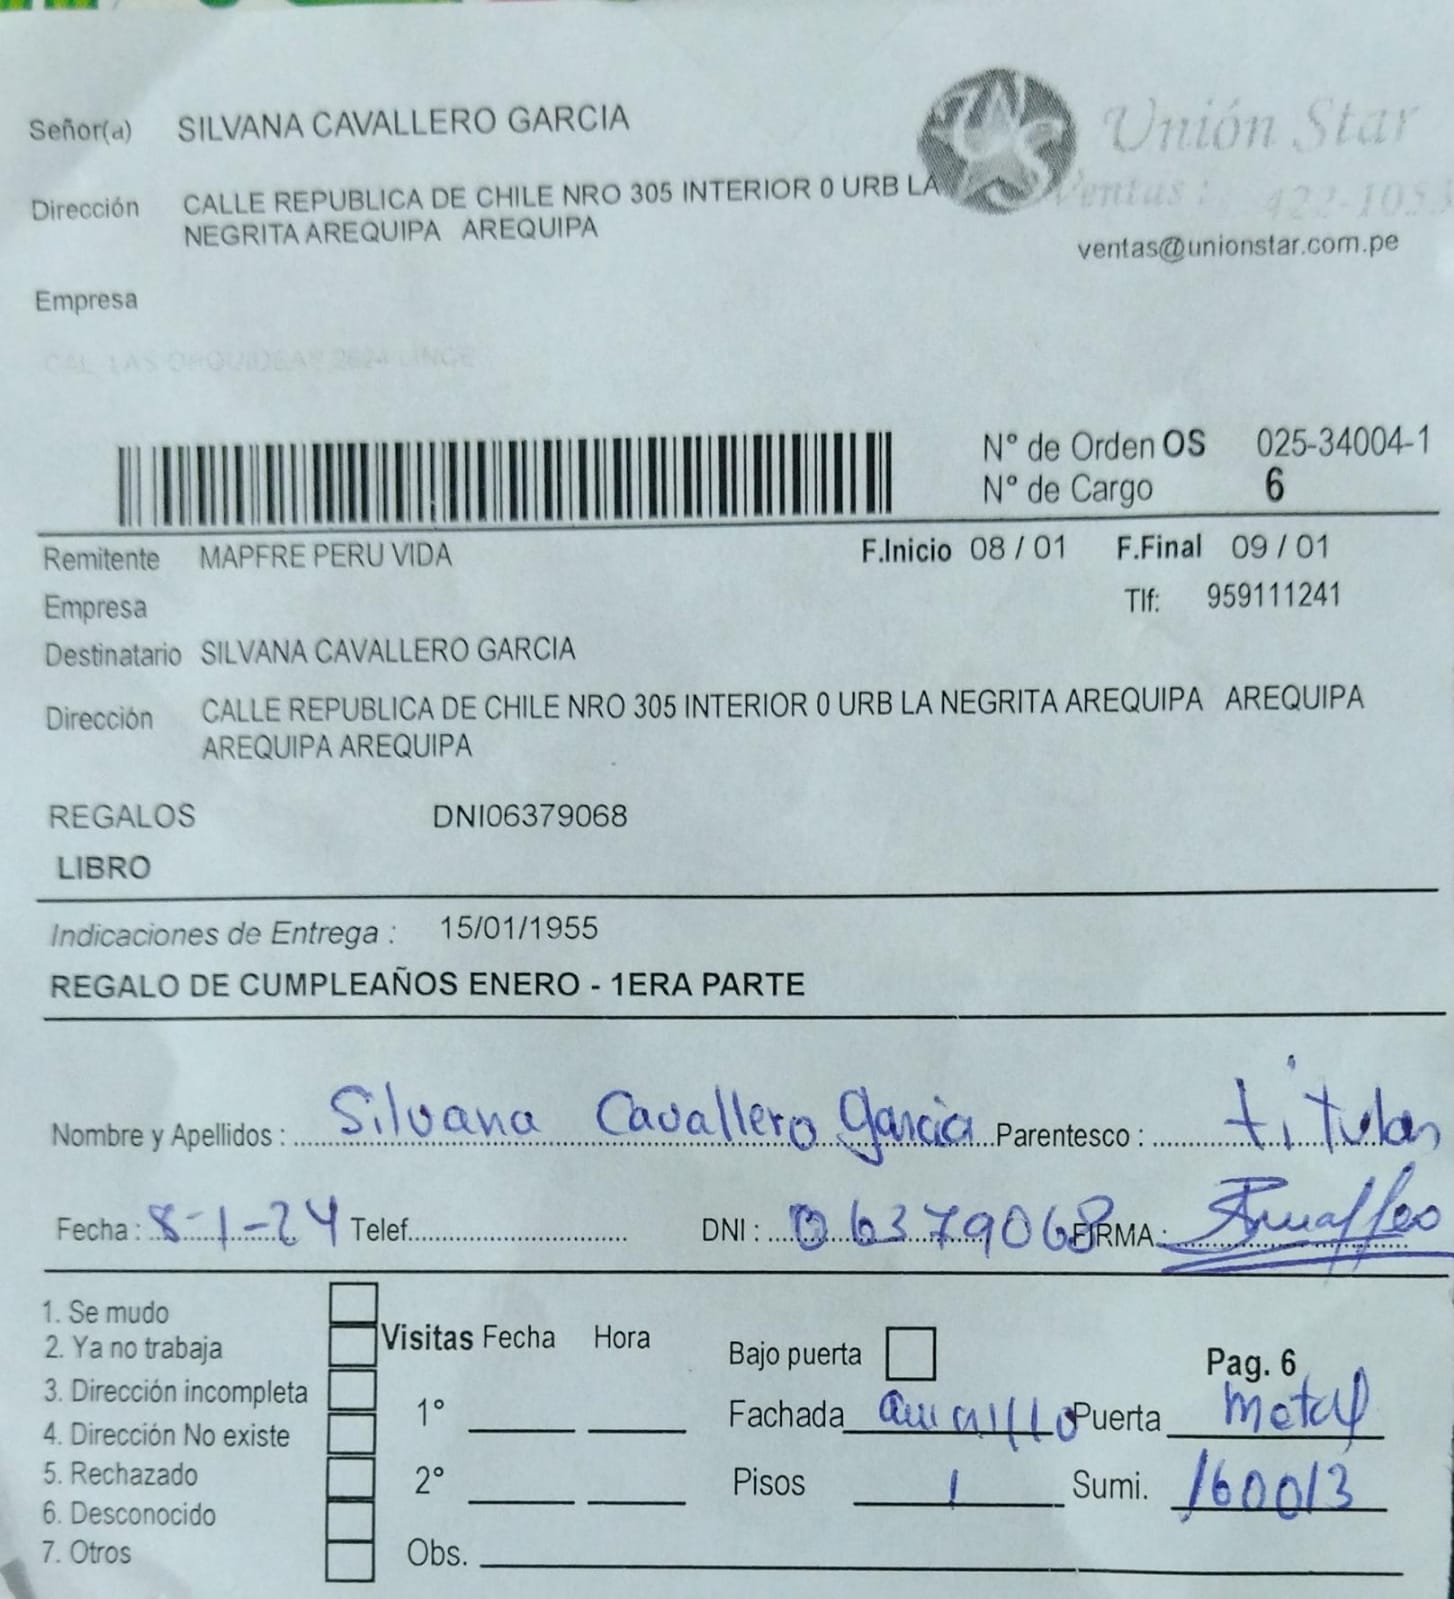 Señor(a) SILVANA CAVALLERO GARCIA
Unión Star
Dirección CALLE REPUBLICA DE CHILE NRO 305 INTERIOR 0 URB LA
NEGRITA AREQUIPA AREQUIPA
Ventas : 422-1053
ventas@unionstar.com.pe
Empresa
CAL LAS ORQUIDEAS 2624 LINCE
N° de Orden OS 025-34004-1
N° de Cargo 6
Remitente MAPFRE PERU VIDA F.Inicio 08 / 01 F.Final 09 / 01
Empresa Tlf: 959111241
Destinatario SILVANA CAVALLERO GARCIA
Dirección CALLE REPUBLICA DE CHILE NRO 305 INTERIOR 0 URB LA NEGRITA AREQUIPA AREQUIPA
AREQUIPA AREQUIPA
REGALOS DNI06379068
LIBRO
Indicaciones de Entrega : 15/01/1955
REGALO DE CUMPLEAÑOS ENERO - 1ERA PARTE
Nombre y Apellidos : Silvana Cavallero Garcia Parentesco : titular
Fecha : 8-1-24 Telef. DNI : 06379068 FIRMA :
1. Se mudo
2. Ya no trabaja
3. Dirección incompleta
4. Dirección No existe
5. Rechazado
6. Desconocido
7. Otros
Visitas Fecha Hora
1°
2°
Obs.
Bajo puerta Pag. 6
Fachada amarillo Puerta metal
Pisos 1 Sumi. 160013